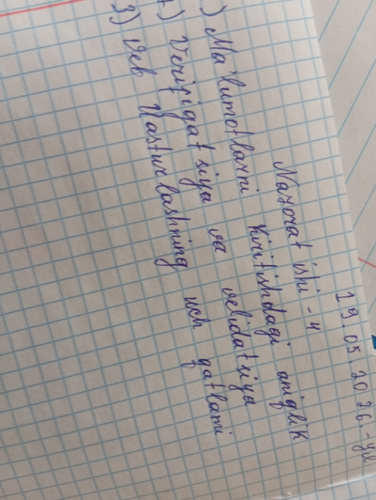 19.05.2026.-yil
Nazorat ishi - 4
) Ma'lumotlarni kiritishdagi aniqlik
) Verifigatsiya va velidatsiya
3) Veb dasturlashning uch qatlami